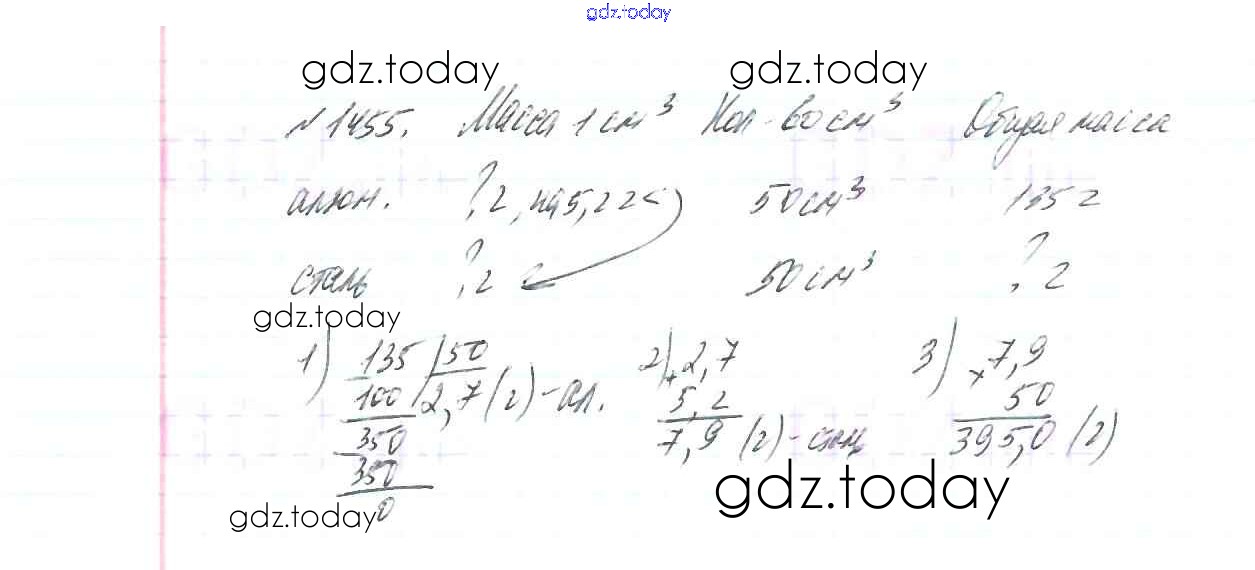 gdz.today
gdz.today gdz.today
№1455. Масса 1 см³ Кол-во см³ Общая масса
алюм. ? г, на 5,2 г < 50 см³ 135 г
сталь ? г 50 см³ ? г
gdz.today
1) 135 | 50 2) 2,7 3) 7,9
100 | 2,7 (г) - ал. + 5,2 × 50
350 7,9 (г) - стал 395,0 (г)
350
0
gdz.today
gdz.today